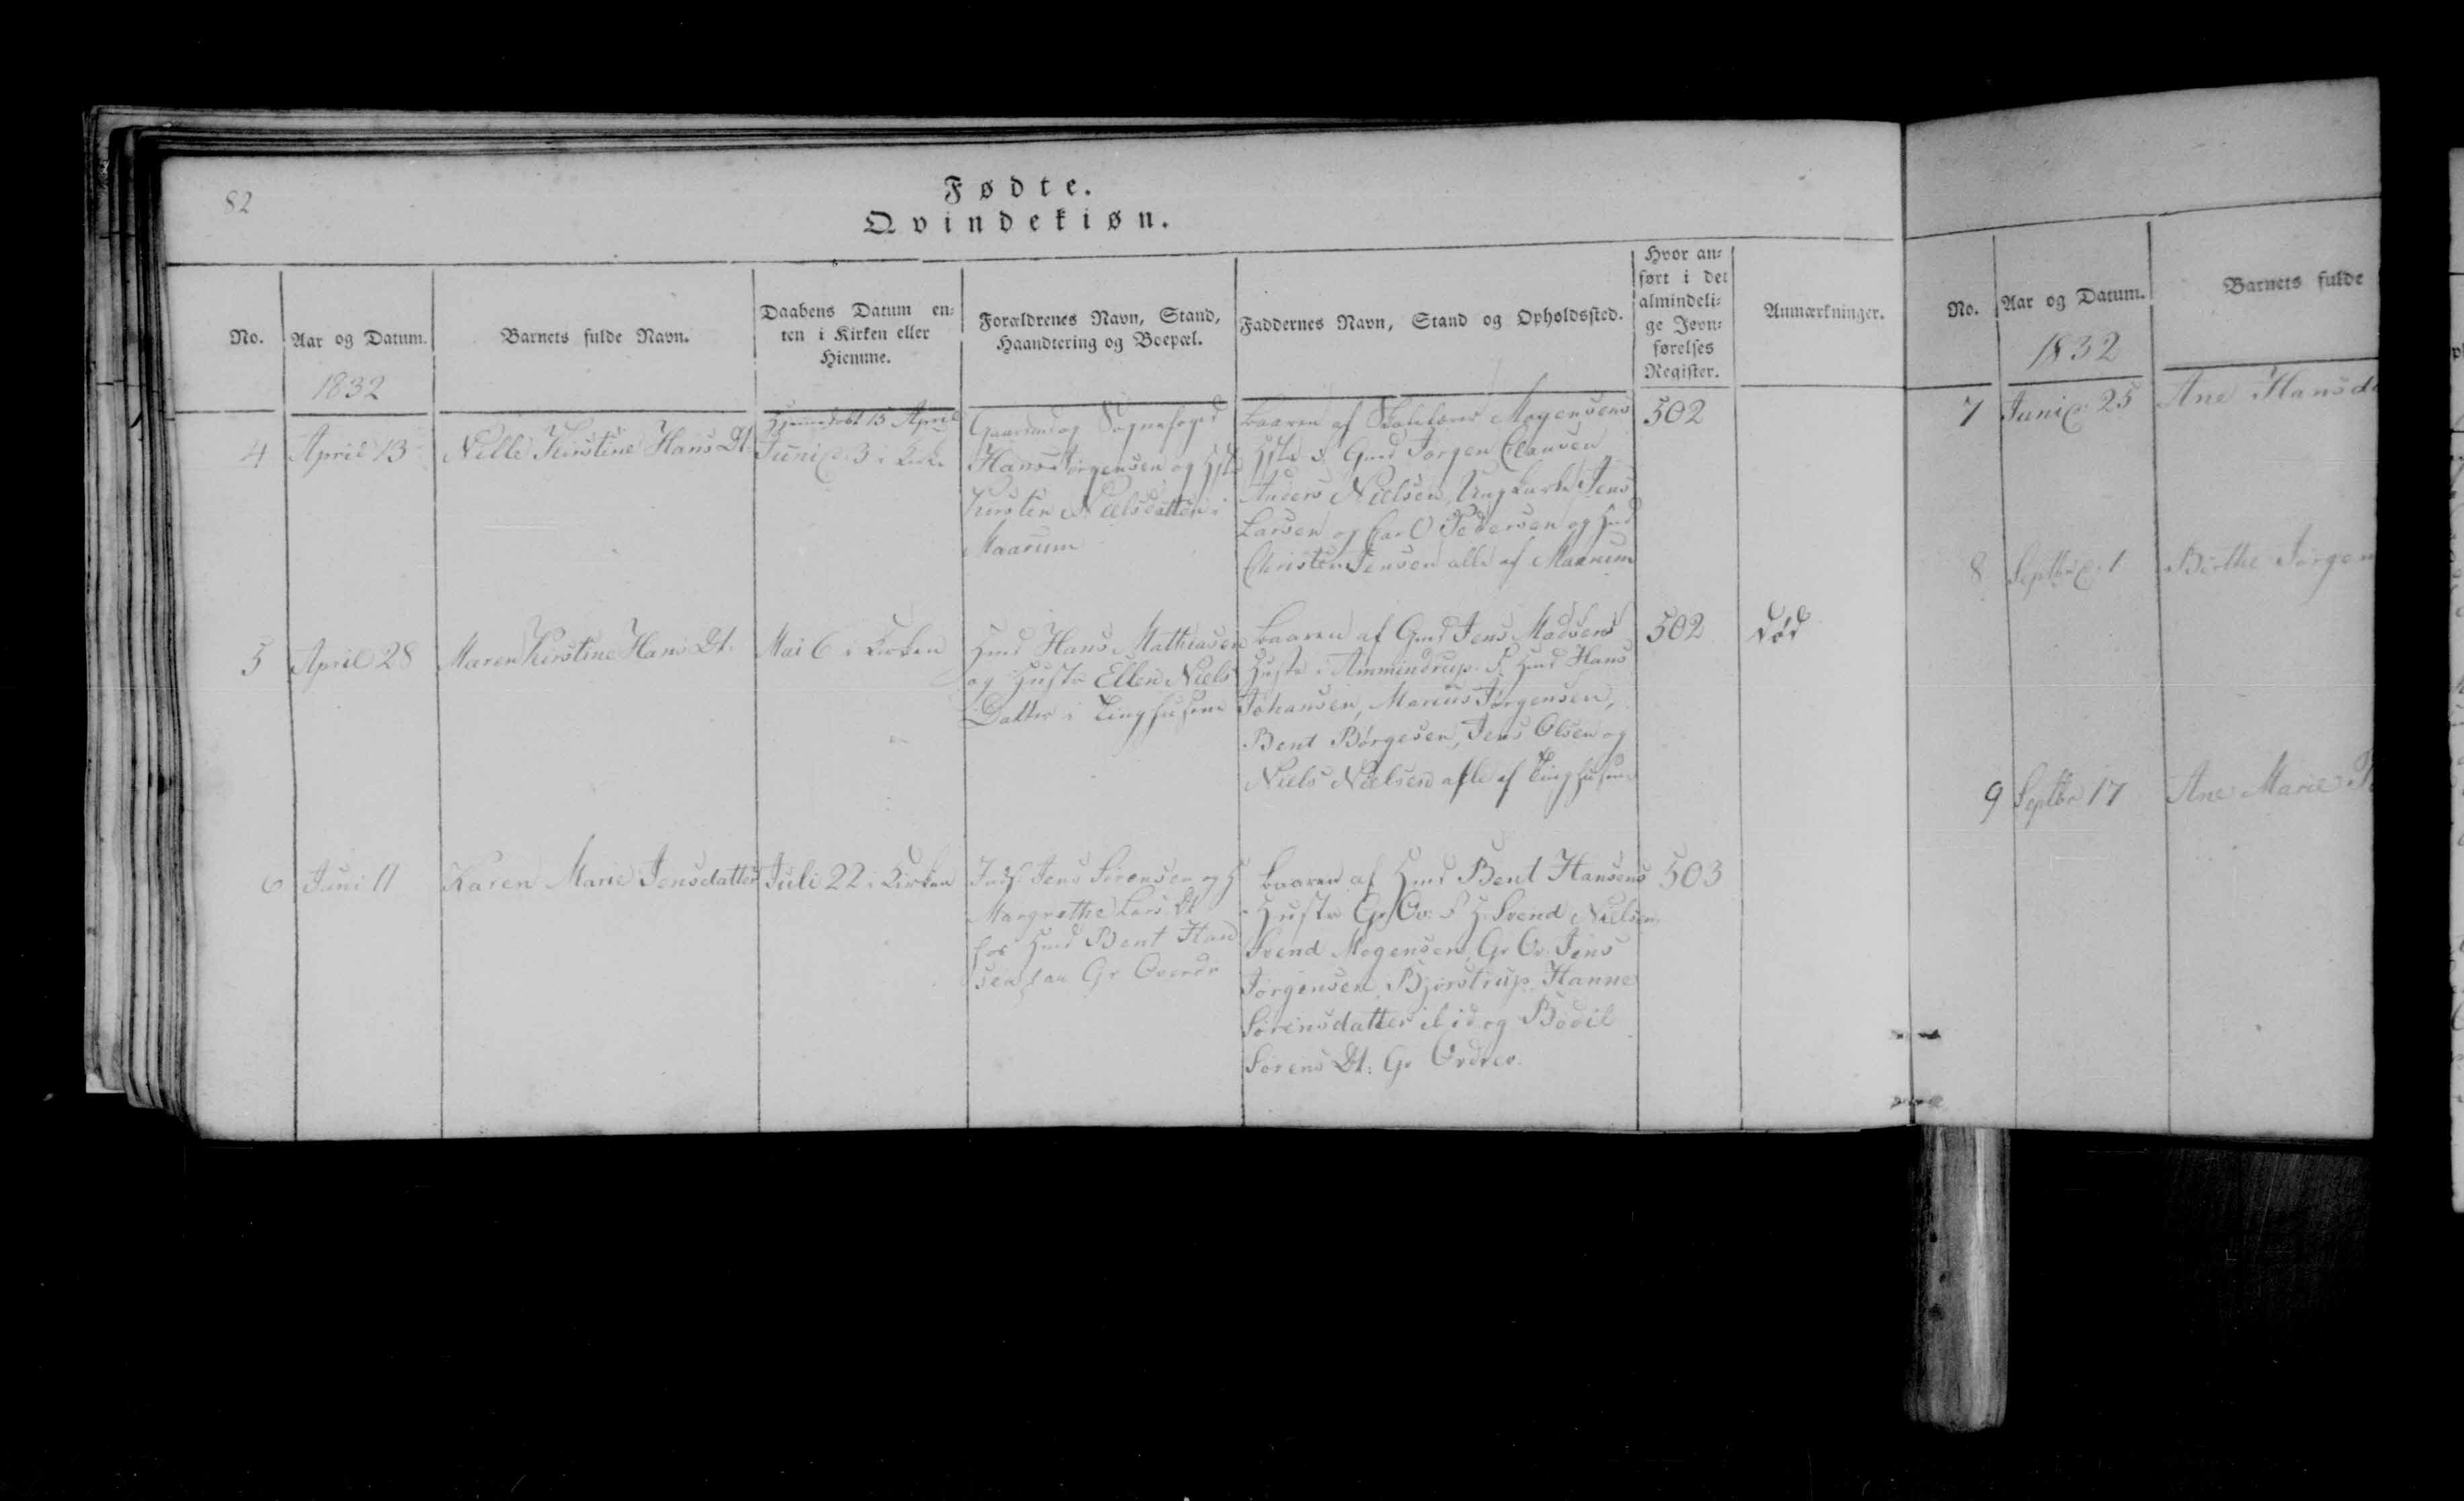 82
Fødte.
Qvindekiøn.
No.
Aar og Datum.
1832
Barnets fulde Navn.
Daabens Datum en=
ten i Kirken eller
Hiemme.
Forældrenes Navn, Stand,
Haandtering og Boepæl.
Faddernes Navn, Stand og Opholdssted.
Hvor an=
ført i det
almindeli=
ge Jevn=
førelses
Register.
Anmærkninger.
4
April 13
Nille Kirstine Hans Dt.
Hjemmedøbt 15 April
Juni d. 3 i Kirk.
Gaardmd og Sognefoged
Hans Jørgensen og Hstr
Kirsten Nielsdatter i
Maarum
baaren af Mogensens
Hstr. F. Gmd Jørgen Clausen
Anders Nielsen, Ungkarle Jens
Larsen og Carl Pedersen og Hmd
Christen Jensen alle af Maarum
502
5
April 28
Maren Kirstine Hans Dt.
Mai 6 i Kirken
Hmd Hans Mathiasen
og Hustr Ellen Niels
Datter i Tinghusene
baaren af Gmd Jens Madsens
Hustr i Ammindrup. F. Hmd Hans
Johansen, Marius Jørgensen,
Bent Børgesen, Jens Olsen og
Niels Nielsen alle af Tinghusene
502
Død
6
Juni 11
Karen Marie Jensdatter
Juli 22 i Kirken
Inds. Jens Sørensen og H
Margrethe Lars Dt
hos Hmd Bent Han
sen paa Gr Overdr
baaren af Hmd Bent Hansens
Hustr Gr Ov: F H. Svend Nielsen
Svend Mogensen, Gr Ov. Jens
Jørgensen, Bjørstrup, Hanne
Sørensdatter ibid og Bodil
Sørens Dt: Gr Ovdrev.
503
No.
Aar og Datum.
1832
Barnets fulde
7
Juni d. 25
Ane Hansd
8
Septbr d. 1
Birthe Jørgen
9
Septbr 17
Ane Marie